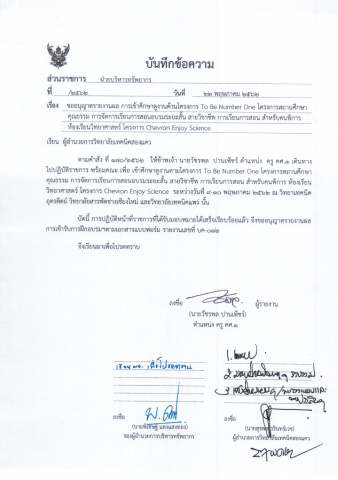 บันทึกข้อความ
ส่วนราชการ ฝ่ายบริหารทรัพยากร
ที่ /๒๕๖๒ วันที่ ๒๒ พฤษภาคม ๒๕๖๒
เรื่อง ขออนุญาตรายงานผล การเข้าศึกษาดูงานด้านโครงการ To Be Number One โครงการสถานศึกษา
คุณธรรม การจัดการเรียนการสอนอบรมระยะสั้น สายวิชาชีพ การเรียนการสอน สำหรับคนพิการ
ห้องเรียนวิทยาศาสตร์ โครงการ Chevron Enjoy Science
เรียน ผู้อำนวยการวิทยาลัยเทคนิคสองแคว
ตามคำสั่งที่ /๒๕๖๒ ให้ข้าพเจ้า นายวัชรพล ปานเพ็ชร์ ตำแหน่ง ครู คศ.๑ เดินทาง
ไปปฏิบัติราชการ พร้อมคณะ เพื่อ เข้าศึกษาดูงานด้านโครงการ To Be Number One โครงการสถานศึกษา
คุณธรรม การจัดการเรียนการสอนอบรมระยะสั้น สายวิชาชีพ การเรียนการสอน สำหรับคนพิการ ห้องเรียน
วิทยาศาสตร์ โครงการ Chevron Enjoy Science ระหว่างวันที่ ๙-๑๐ พฤษภาคม ๒๕๖๒ ณ วิทยาลัยเทคนิค
อุตรดิตถ์ วิทยาลัยสารพัดช่างเชียงใหม่ และวิทยาลัยเทคนิคแพร่ นั้น
บัดนี้ การปฏิบัติหน้าที่ราชการที่ได้รับมอบหมายได้เสร็จเรียบร้อยแล้ว จึงขออนุญาตรายงานผล
การเข้ารับการฝึกอบรมฯตามเอกสารแบบฟอร์ม รายงานเลขที่
จึงเรียนมาเพื่อโปรดทราบ
ลงชื่อ ผู้รายงาน
(นายวัชรพล ปานเพ็ชร์)
ตำแหน่ง ครู คศ.๑
เรียน ผอ. เพื่อโปรดทราบ
ลงชื่อ
ลงชื่อ
รองผู้อำนวยการฝ่ายบริหารทรัพยากร
ผู้อำนวยการวิทยาลัยเทคนิคสองแคว